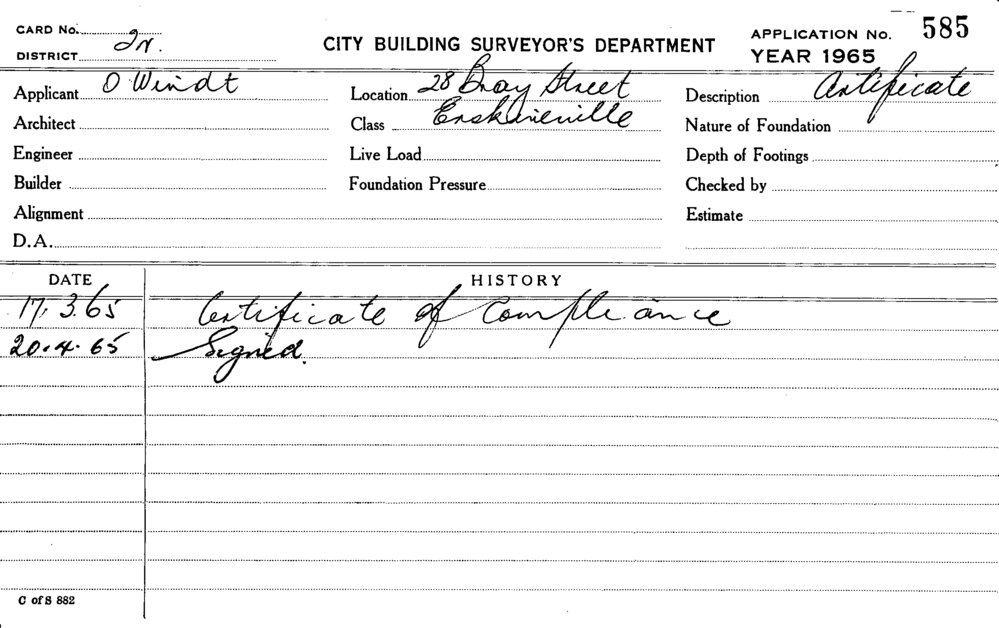 CARD No. 2N.
DISTRICT
CITY BUILDING SURVEYOR'S DEPARTMENT
APPLICATION No. 585
YEAR 1965
Applicant O Windt
Location 28 Bray Street
Erskineville
Description Certificate
Architect
Class
Nature of Foundation
Engineer
Live Load
Depth of Footings
Builder
Foundation Pressure
Checked by
Alignment
Estimate
D.A.
DATE HISTORY
17.3.65 Certificate of Compliance
20.4.65 Signed.
C of S 882